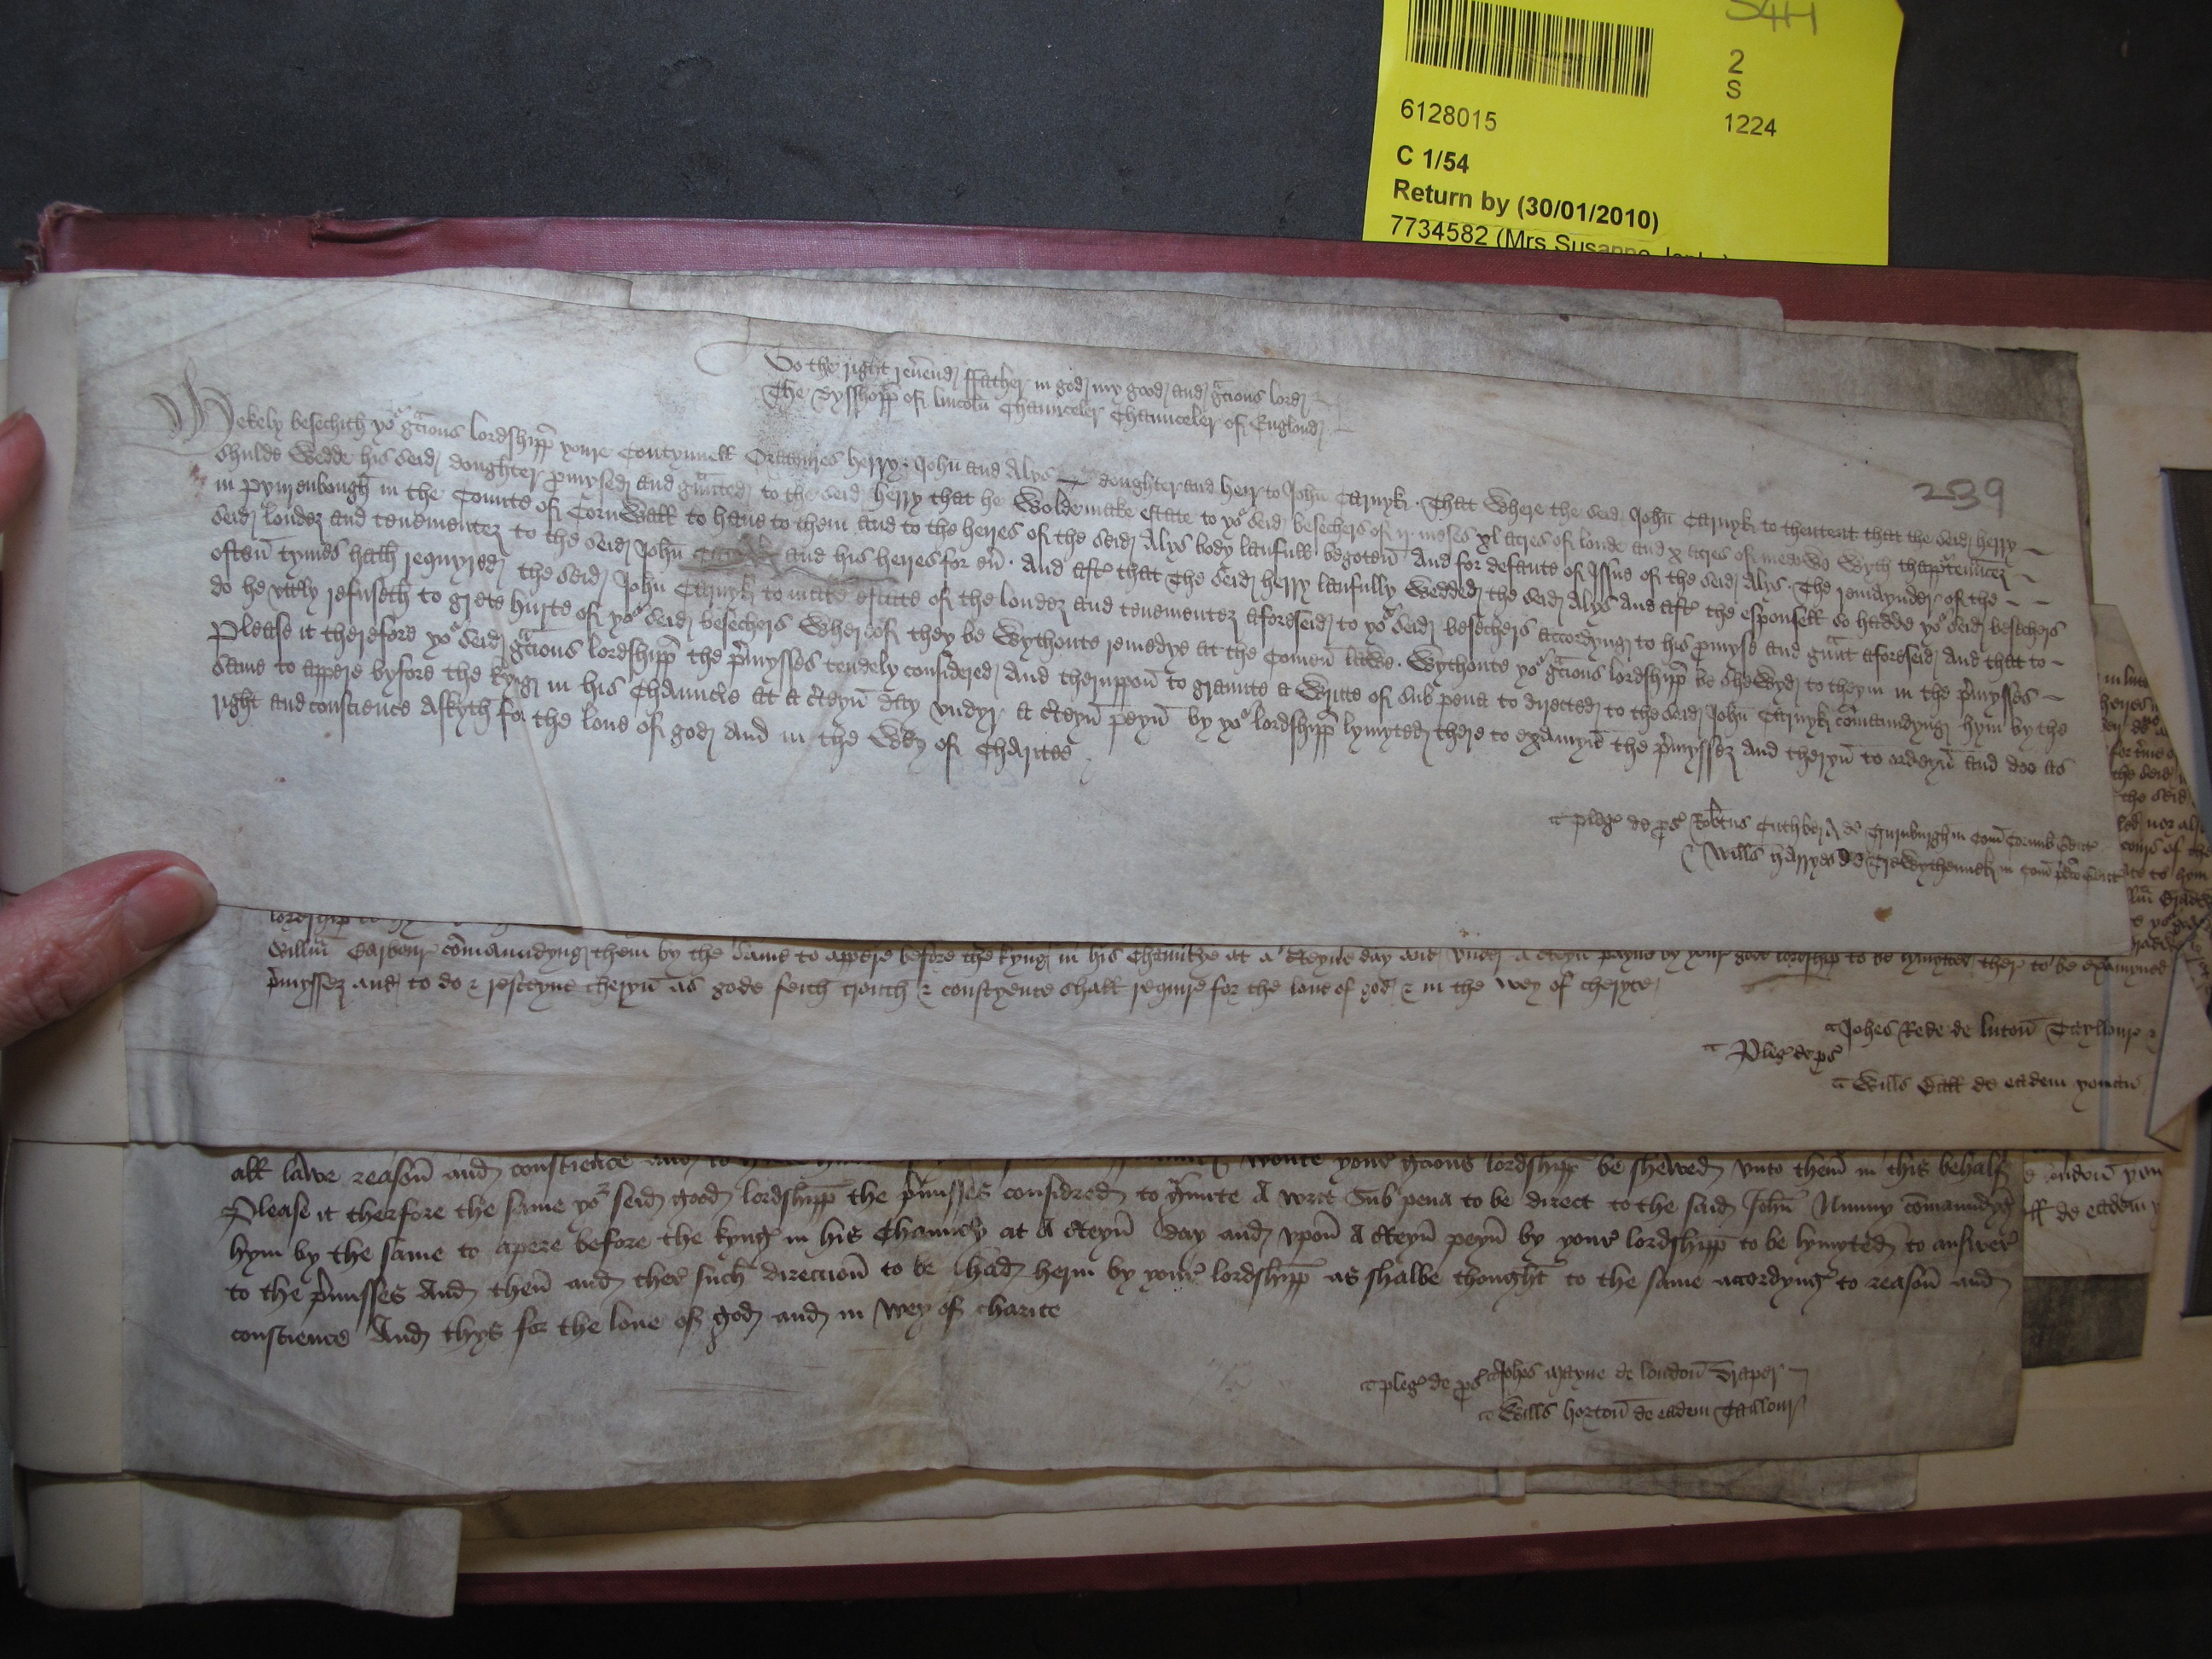 S4H
2
S
1224
6128015
C 1/54
Return by (30/01/2010)
7734582 (Mrs Susanne
239
To the right reu̅end ffather in god my good and gracious lord
The Bysshopp of lincoln̅ Chaunceler Chaunceler of Englond
Mekely besechith yor gracious lordshipp youre Contynuell Oratours herry John̅ and Alys doughter and heir to John̅ Carnyk. That Where the seid John̅ Carnyk to thentent that the seid herry
shulde Wedde his seid doughter p̲mysed and graunted to the seid herry that he Wolde make estate to yor seid besechers of ij meses xl acres of londe and x acres of medowe Wyth thapp̲ten̅ncez
in in the Counte of CornWall to haue to them and to the heyres of the seid Alys body laufull begoten̅ And for defaute of Issue of the seid Alys. The remaynder of the
seid londez and tenementez to the seid John̅ and his heyres for eu̅. And aft̕ that The seid herry laufully Wedded the seid Alys and aft̕ the esponsell so hadde yor seid besechers
often̅ tymes hath requyred the seid John̅ Carnyk to make estate of the londez and tenementez aforeseid to yor seid besechers accordyng to his p̲myse and graunt aforeseid And that to
do he vtt̕ly refuseth to grete hurte of yor seid besechers Wherof they be Wythoute remedye at the Comen̅ laWe. Wythoute yor gracious lordshipp be sheWyd to theym in the p̕mysses
Please it therefore yor seid gracious lordshipp the p̕mysses tendely considered And theruppon̅ to graunte a Writte of sub pena to directed to the seid John̅ Carnyk com̅aundyng hym by the
same to appere byfore the kyng in his Chauncle at a c̕teyn̅ day vndyr a c̕teyn̅ peyn̅ by yor lordshipp lymyted there to examyne the p̕myssez and theryn̅ to ordeyn̅ and doo as
right and conscience Askyth for the loue of god And in the Wey of Charitee
pleg̕ de p̲s̕ Rob̕tus Cuthbert de in Com̅ Cornub̕
Will̅s harryes de in Com̅ p̕d̕co
lordship
Will̅m com̅aundyng them by the same to appere before the kyng in his Chauncre at a c̕teyne day and vnder a c̕teyn payne by your gode lordship to be lymyted ther to be examyned
p̕myssez and to do & resceyue theryn̅ as gode feith trouth & consciyence shall require for the loue of god & in the wey of cheryte
Joh̅es Rede de luton̅ Tayllour &
Pleg̕ de p̲s̕
Will̅s Dall de eadem yoman
all lawe reason̅ and conscience and to woute your gracious lordshipp be shewed vnto them̅ in this behalf
Please it therfore the same yor seid good lordshipp the p̕misses considred to graunte A writ Sub pena to be direct to the said John̅ Nunny com̅aundyg
hym by the same to apere before the kyng in his Chauncery at A c̕teyn̅ day and vpon̅ A c̕teyn̅ peyn̅ by your lordshipp to be lymyted to answer
to the p̕misses And then̅ and ther such direccion̅ to be had herin by your lordshipp as shalbe thought to the same accordyng to reason̅ and
conscience And thys for the loue of god and in wey of charite
pleg̕ de p̲s̕ Joh̅es Mayne de london̅ Draper
Will̅s horton̅ de eadem Taillour